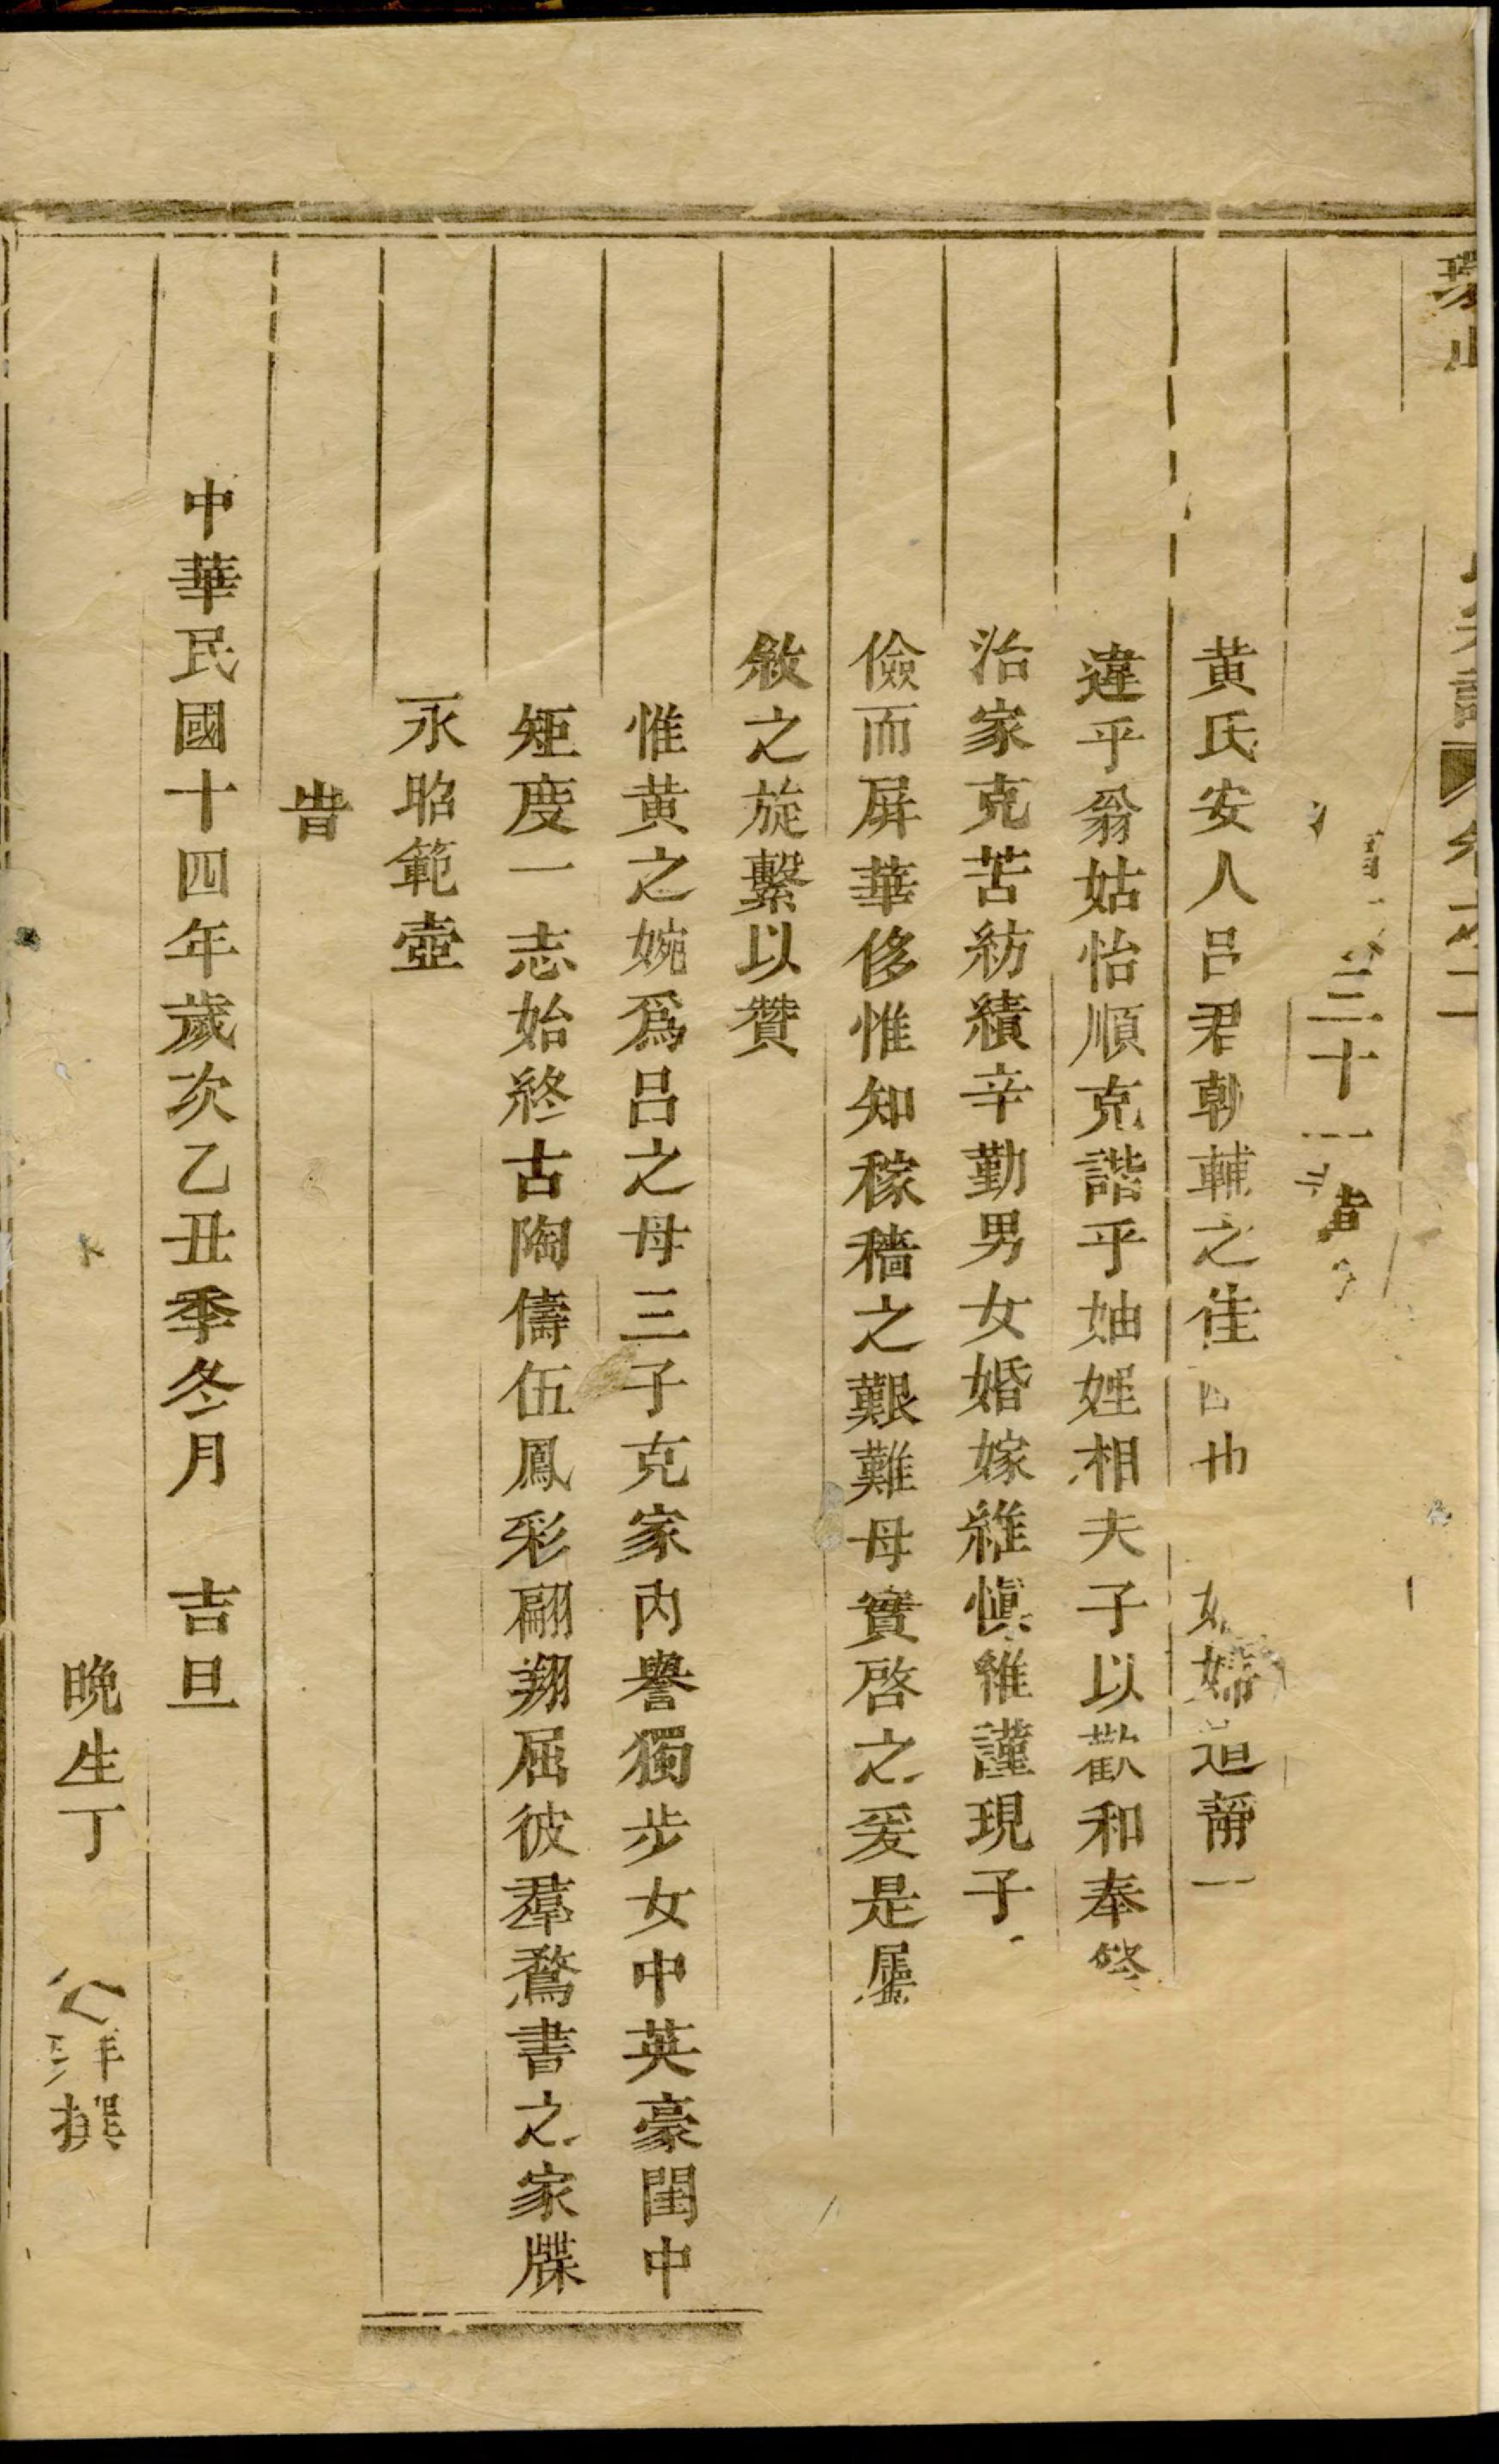 三十
黄氏安人吕君朝輔之佳也婦道靜一
違乎翁姑怡順克諧乎妯娌相夫子以歡和奉
治家克苦紡績辛勤男女婚嫁維慎維謹現子
儉而屏華侈惟知稼穡之艱難母實啓之爰是屬
敘之旋繫以贊
惟黄之婉爲吕之母三子克家內譽獨步女中英豪閨中
矩度一志始終古陶儔伍鳳彩翩翔屈彼羣鶩書之家牒
永昭範壺
旹
中華民國十四年歲次乙丑季冬月 吉旦
晚生丁撰